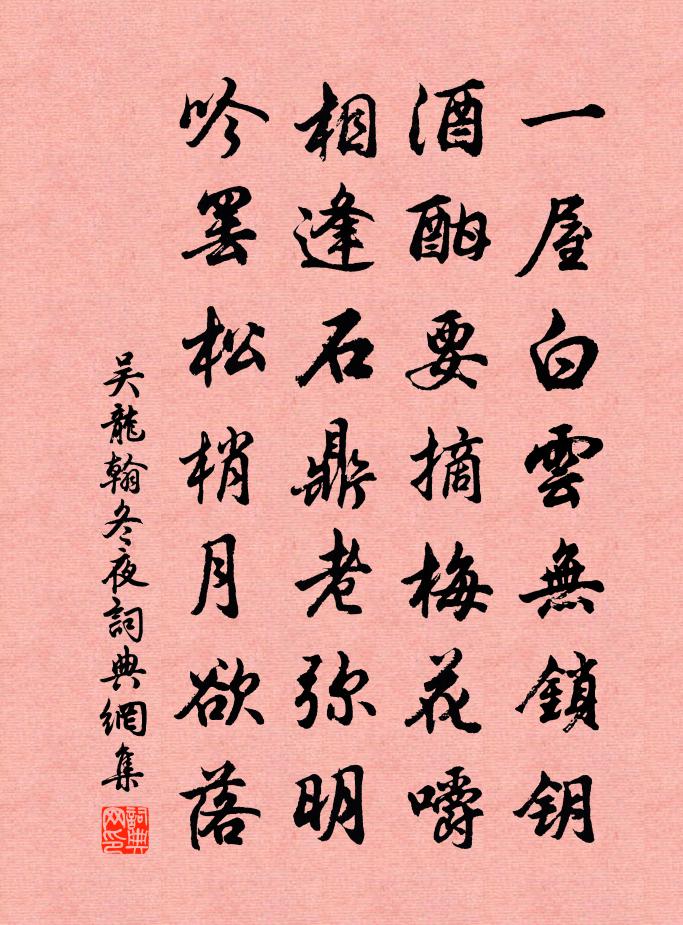 一屋白雲無鎖钥
酒酣要摘梅花嚼
相逢石鼎老弥明
吟罢松梢月欲落
吴龍翰冬夜詞典網集
詞典网印